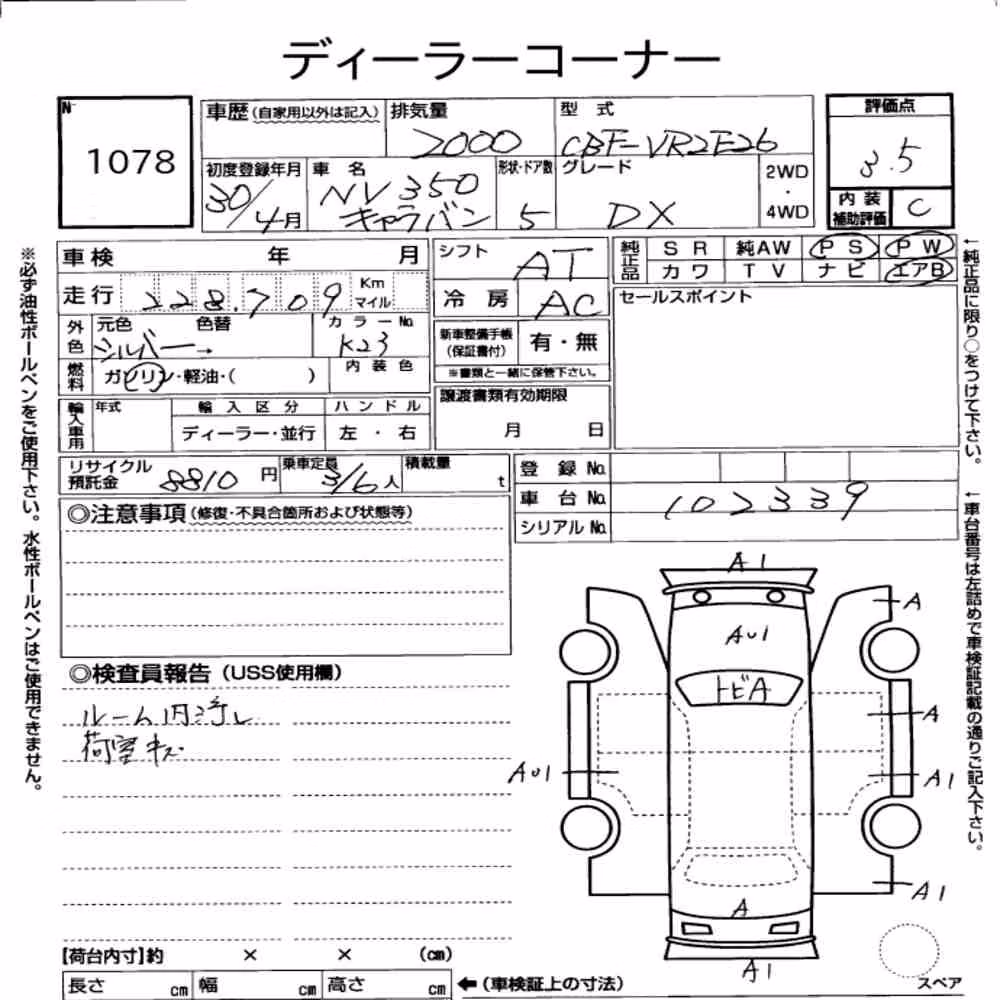 ディーラーコーナー
No
1078
車歴 (自家用以外は記入)
排気量
2000
型 式
CBF-VR2E26
評価点
3.5
内装補助評価 C
初度登録年月
30/4月
車 名
NV350
キャラバン
形状・ドア数
5
グレード
DX
2WD
・
4WD
車検 年 月
走行 228,709 Km マイル
外色 元色 色替
シルバー→
カラーNo
K23
燃料 ガソリン・軽油・( )
内装色
輸入車用 年式
輸入区分
ディーラー・並行
ハンドル
左・右
シフト AT
冷房 AC
新車整備手帳
(保証書付)
有・無
※書類と一緒に保管下さい。
譲渡書類有効期限
月 日
純正品 SR 純AW PS PW
カワ TV ナビ エアB
セールスポイント
リサイクル預託金 8810 円
乗車定員 3/6人
積載量 t
登録No
車台No 102339
シリアルNo
◎注意事項 (修復・不具合箇所および状態等)
◎検査員報告 (USS使用欄)
ルーム内汚し
荷室キズ
【荷台内寸】約 × × (cm)
長さ cm 幅 cm 高さ cm
←(車検証上の寸法)
A1
AU1
トビA
A
A
AU1
A1
A1
A
A1
スペア
※必ず油性ボールペンをご使用下さい。水性ボールペンはご使用できません。
←純正品に限り○をつけて下さい。
←車台番号は左詰めで車検証記載の通りご記入下さい。